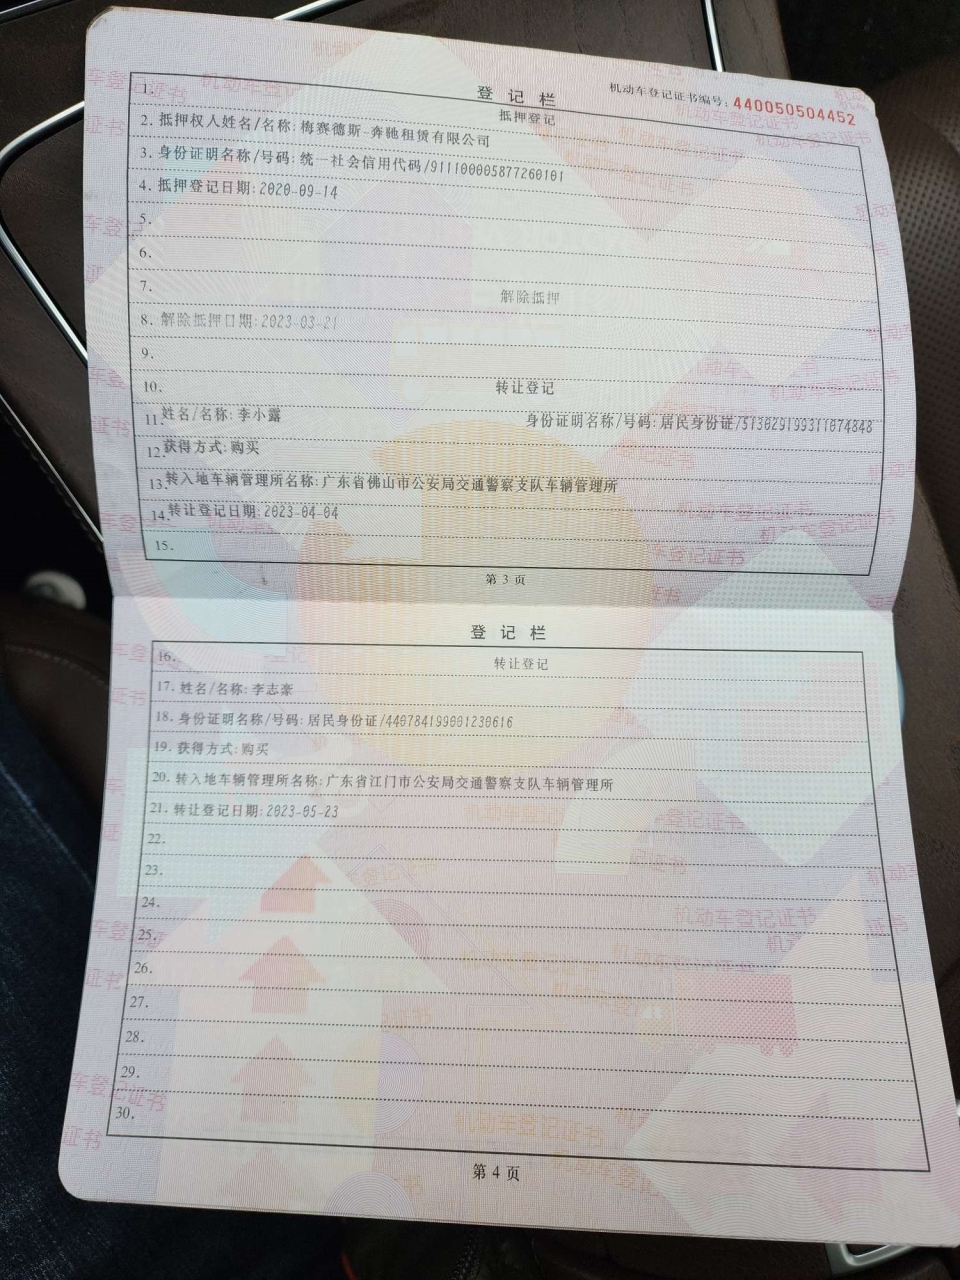 登记栏
机动车登记证书编号: 440050504452
1. 抵押登记
2. 抵押权人姓名/名称: 梅赛德斯-奔驰租赁有限公司
3. 身份证明名称/号码: 统一社会信用代码/911100005877260101
4. 抵押登记日期: 2020-09-14
5.
6.
7. 解除抵押
8. 解除抵押日期: 2023-03-21
9.
10. 转让登记
11. 姓名/名称: 李小露 身份证明名称/号码: 居民身份证/513029199311074848
12. 获得方式: 购买
13. 转入地车辆管理所名称: 广东省佛山市公安局交通警察支队车辆管理所
14. 转让登记日期: 2023-04-04
15.
第 3 页
登记栏
16. 转让登记
17. 姓名/名称: 李志豪
18. 身份证明名称/号码: 居民身份证/440784199001230616
19. 获得方式: 购买
20. 转入地车辆管理所名称: 广东省江门市公安局交通警察支队车辆管理所
21. 转让登记日期: 2023-05-23
22.
23.
24.
25.
26.
27.
28.
29.
30.
第 4 页